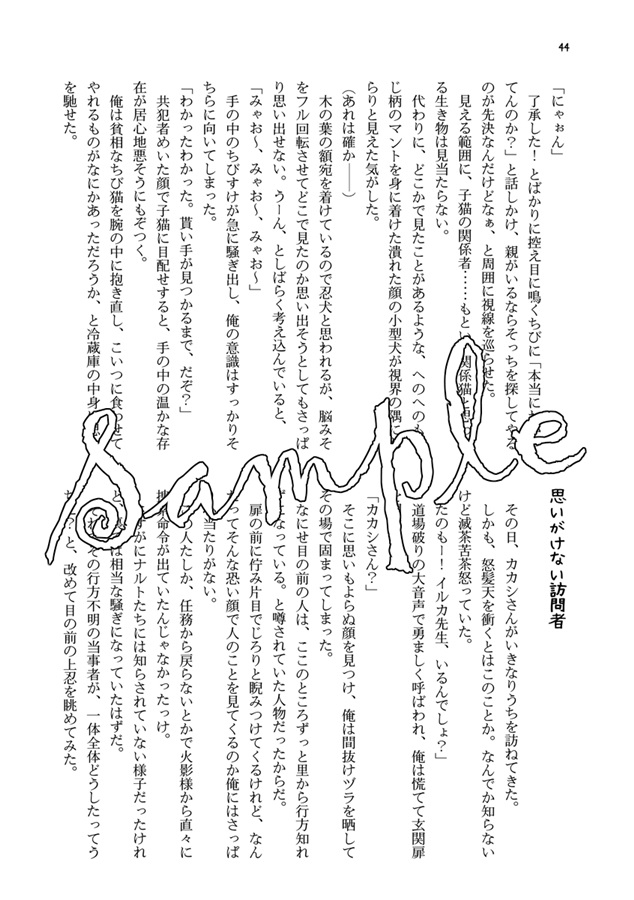 44
「にゃぉん」
了承した！とばかりに控え目に鳴くちびに「本当に
てんのか？」と話しかけ、親がいるならそっちを探してやる
のが先決なんだけどなぁ、と周囲に視線を巡らせた。
見える範囲に、子猫の関係者……もとい関係猫と
る生き物は見当たらない。
代わりに、どこかで見たことがあるような、へのへのも
じ柄のマントを身に着けた潰れた顔の小型犬が視界の隅に
らりと見えた気がした。
（あれは確か――）
木の葉の額宛を着けているので忍犬と思われるが、脳みそ
をフル回転させてどこで見たのか思い出そうとしてもさっぱ
り思い出せない。うーん、としばらく考え込んでいると、
「みゃお〜、みゃお〜、みゃお〜」
手の中のちびすけが急に騒ぎ出し、俺の意識はすっかりそ
ちらに向いてしまった。
「わかったわかった。貰い手が見つかるまで、だぞ？」
共犯者めいた顔で子猫に目配せすると、手の中の温かな存
在が居心地悪そうにもぞつく。
俺は貧相なちび猫を腕の中に抱き直し、こいつに食わせて
やれるものがなにかあっただろうか、と冷蔵庫の中身
を馳せた。
思いがけない訪問者
その日、カカシさんがいきなりうちを訪ねてきた。
しかも、怒髪天を衝くとはこのことか。なんでか知らない
けど滅茶苦茶怒っていた。
たのもー！イルカ先生、いるんでしょ？」
道場破りの大音声で勇ましく呼ばわれ、俺は慌てて玄関扉
「カカシさん？」
そこに思いもよらぬ顔を見つけ、俺は間抜けヅラを晒して
その場で固まってしまった。
なにせ目の前の人は、ここのところずっと里から行方知れ
になっている。と噂されていた人物だったからだ。
扉の前に佇み片目でじろりと睨みつけてくるけれど、なん
だってそんな恐い顔で人のことを見てくるのか俺にはさっぱ
当たりがない。
の人たしか、任務から戻らないとかで火影様から直々に
命令が出ていたんじゃなかったっけ。
すがにナルトたちには知らされていない様子だったけれ
は相当な騒ぎになっていたはずだ。
その行方不明の当事者が、一体全体どうしたってう
？と、改めて目の前の上忍を眺めてみた。
Sample